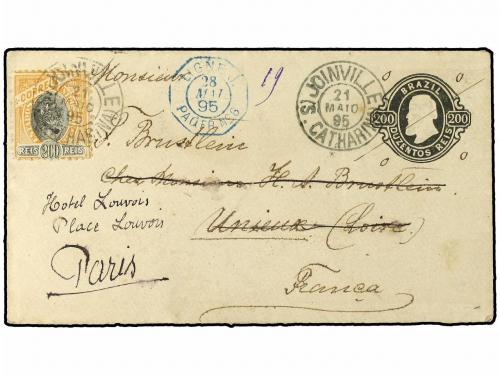 CORREIO
REIS 200 REIS
JOINVILLE
21
95
CATHARINA
Monsieur
LIGNE J
28
MAI
95
PAQ. FR. Nº 6
19
JOINVILLE
21
MAIO
95
S. CATHARINA
BRAZIL
200 200
DUZENTOS REIS
F. Brustlein
Chez Monsieur H. A. Brustlein
Hotel Louvois
Place Louvois
Unieux (Loire)
Paris
França